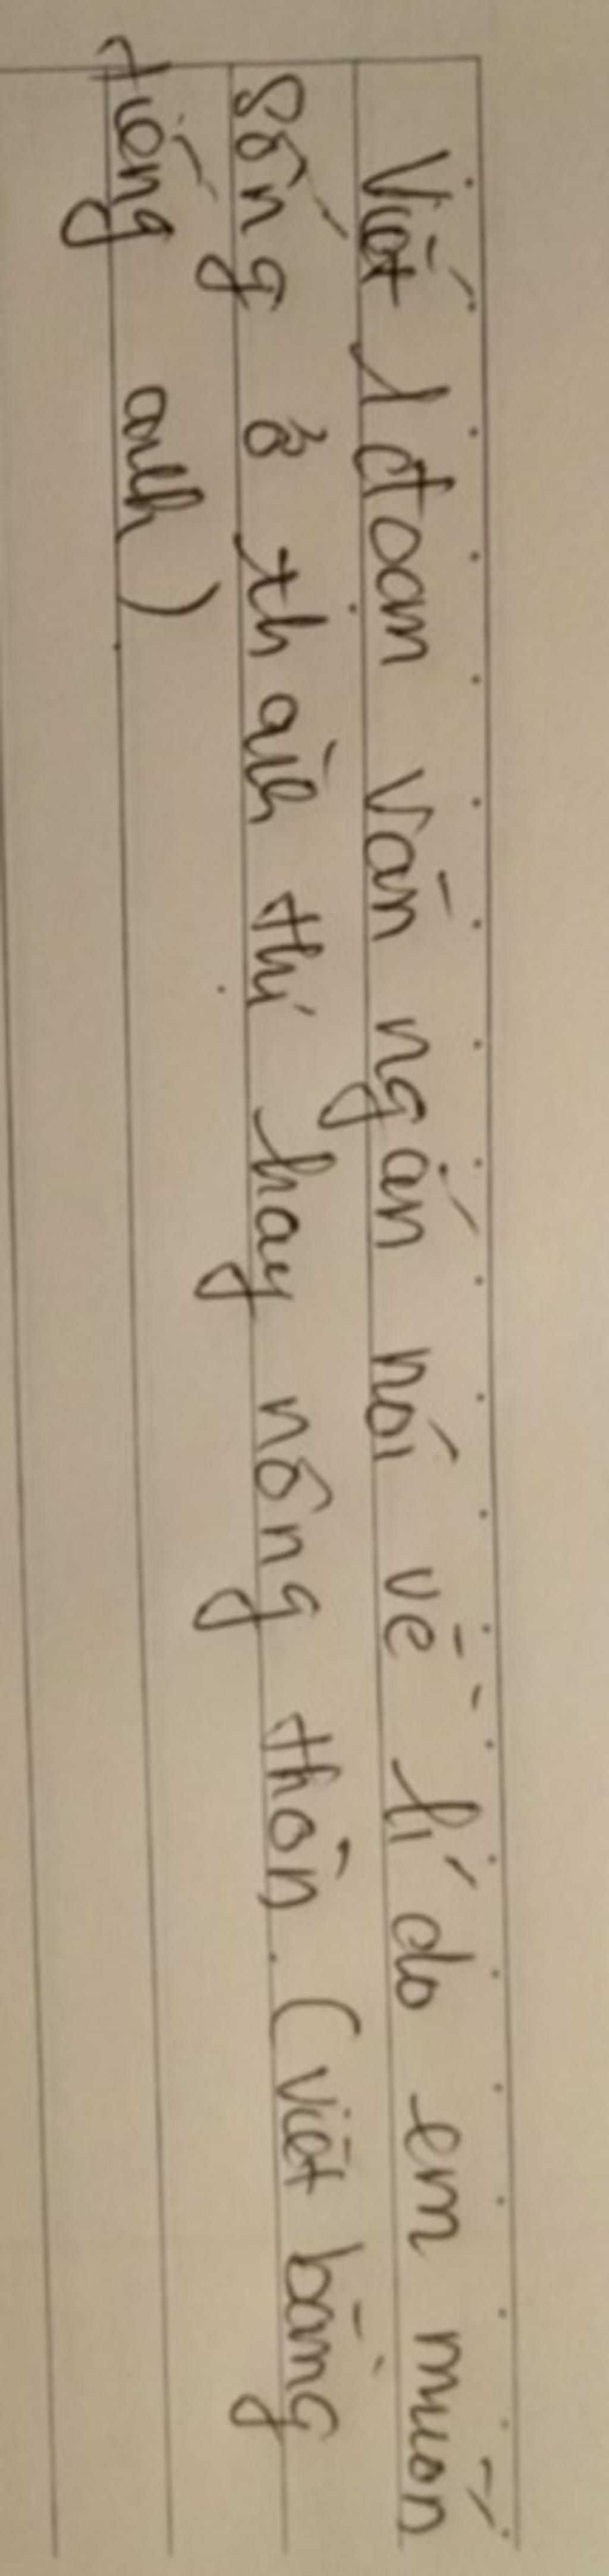 Viết 1 đoạn văn ngắn nói về lí do em muốn
sống ở thành thị hay nông thôn. (viết bằng
tiếng anh)